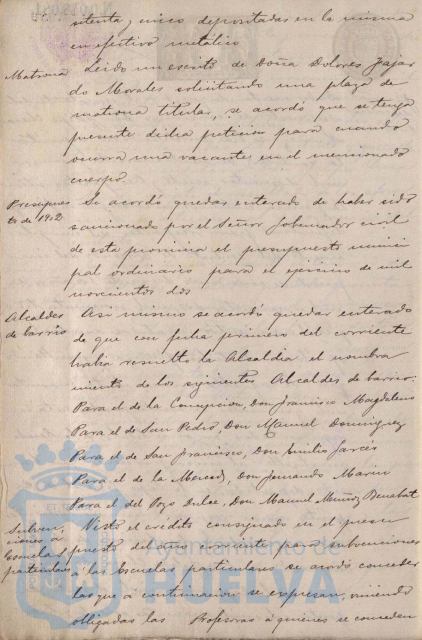 setenta y cinco depositadas en la misma
en efectivo metálico
Matrona
Leido un escrito de Doña Dolores Fajar
do Morales solicitando una plaza de
matrona titular, se acordó que se tenga
presente dicha peticion para cuando
ocurra una vacante en el mencionado
cuerpo
Presupues
to de 1902
Se acordó quedar enterado de haber sido
sancionado por el Señor Gobernador civil
de esta provincia el presupuesto munici
pal ordinario para el ejercicio de mil
novecientos dos
Alcaldes
de barrio
Asi mismo se acordó quedar enterado
de que con fecha primero del corriente
habia resuelto la Alcaldia el nombra
miento de los siguientes Alcaldes de barrio:
Para el de la Concepcion, Don Francisco Magdaleno
Para el de San Pedro, Don Manuel Dominguez
Para el de San Francisco, Don Emilio Garcés
Para el de la Merced, Don Fernando Marin
Para el del Pozo Dulce, Don Manuel Muñoz Benabat
Subven
ciones á
Escuelas
particulares
Visto el crédito consignado en el presu
puesto del año corriente para subvenciones
á las Escuelas particulares se acordó conceder
las que á continuacion se expresan, viniendo
obligadas las Profesoras á quienes se conceden
Ayuntamiento de
HUELVA